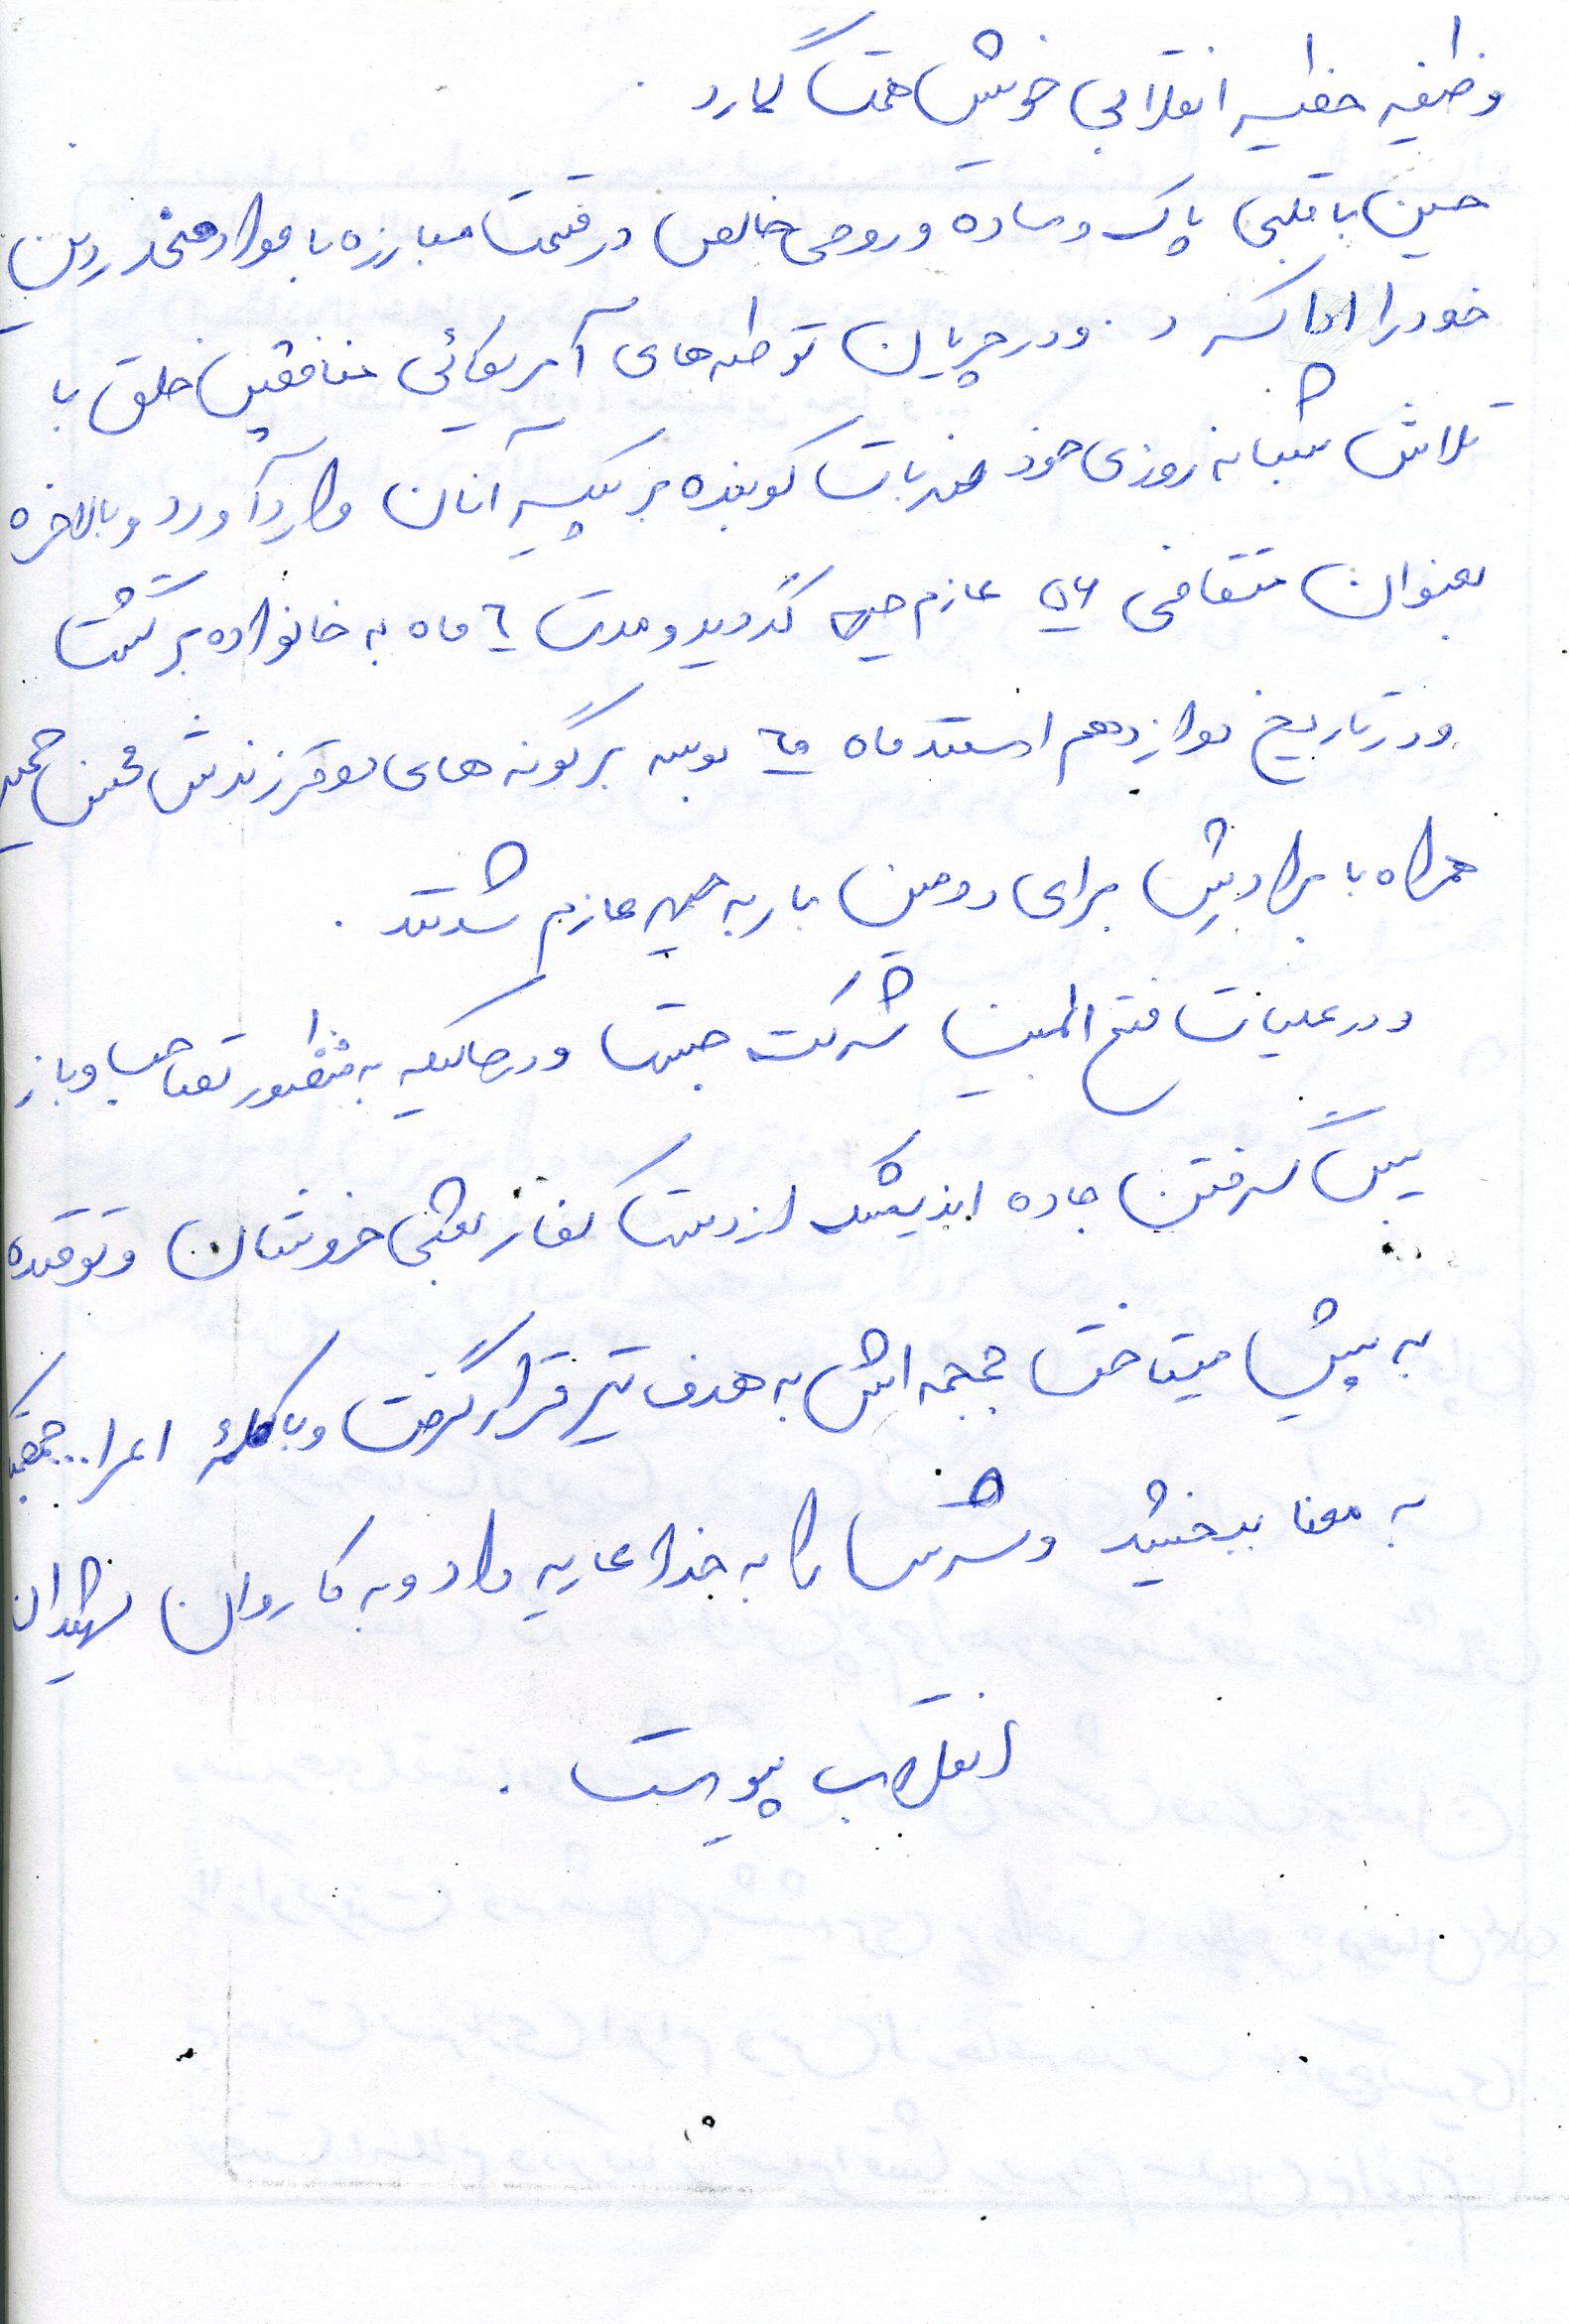 وظیفه خطیر انقلابی خویش همت گمارد .
حسین با قلبی پاک و ساده و روحی خالص در قسمت مبارزه با مواد مخدر دین
خود را ادا کرد . و در جریان توطئه‌های آمریکائی منافقین خلق با
تلاش شبانه روزی خود ضربات کوبنده بر پیکر آنان وارد آورد و بالاخره
بعنوان منقضی ۵۶ عازم جبهه گردید و مدت ۶ ماه به خانواده برگشت
و در تاریخ دوازدهم اسفند ماه ۶۰ بوسه بر گونه های دو فرزندش محسن حمید
همراه با برادرش برای دومین بار به جبهه عازم شدند .
و در عملیات فتح المبین شرکت جست و در حالیکه به منظور تصاحب و باز
پس گرفتن جاده اندیمشک از دست کفار بعثی خروشان و توفنده
به پیش میتاخت جمجمه اش به هدف تیر قرار گرفت و با کلمهٔ اعرا...جمجمتک
به معنا بخشید و سرش را به خدا عاریه داد و به کاروان شهیدان
انقلاب پیوست .